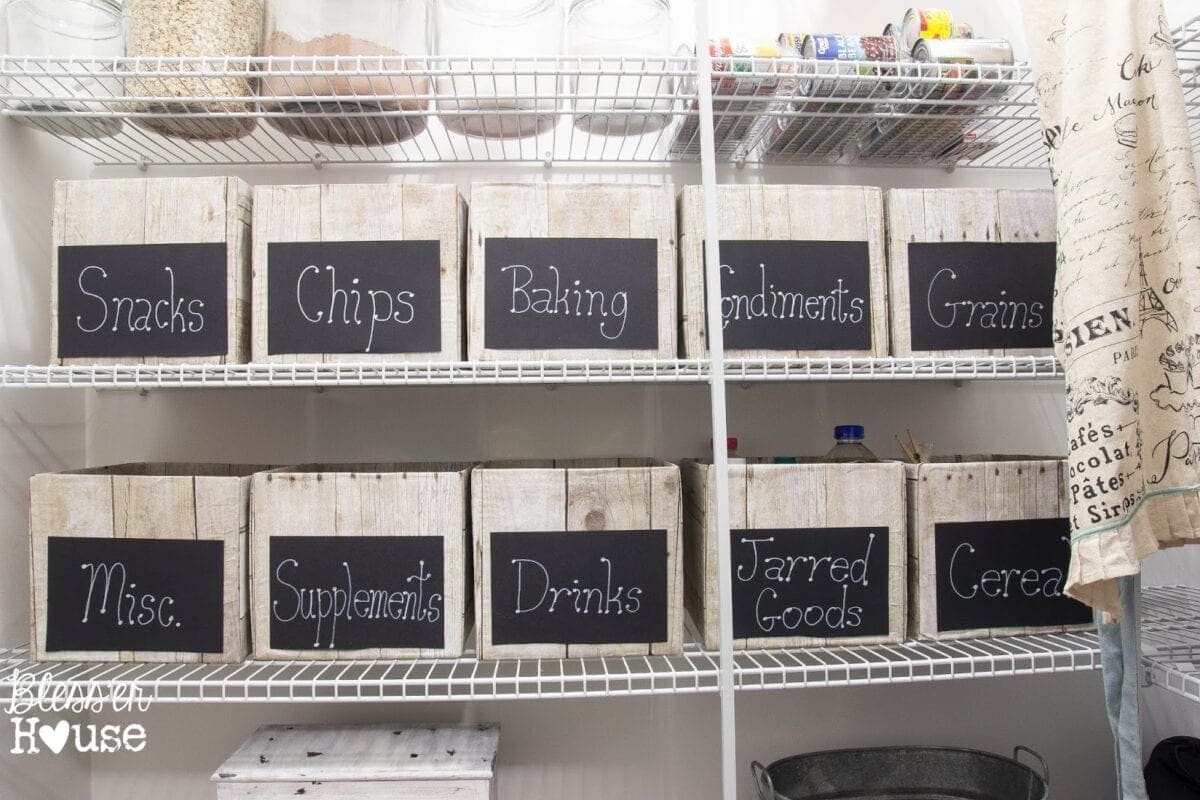 Snacks
Chips
Baking
ondiments
Grains
Misc.
Supplements
Drinks
Jarred
Goods
Cereal
Bless'er
House
Macon
SIEN
PARI
Cafés
ocolat
Pâtes
et Sirops